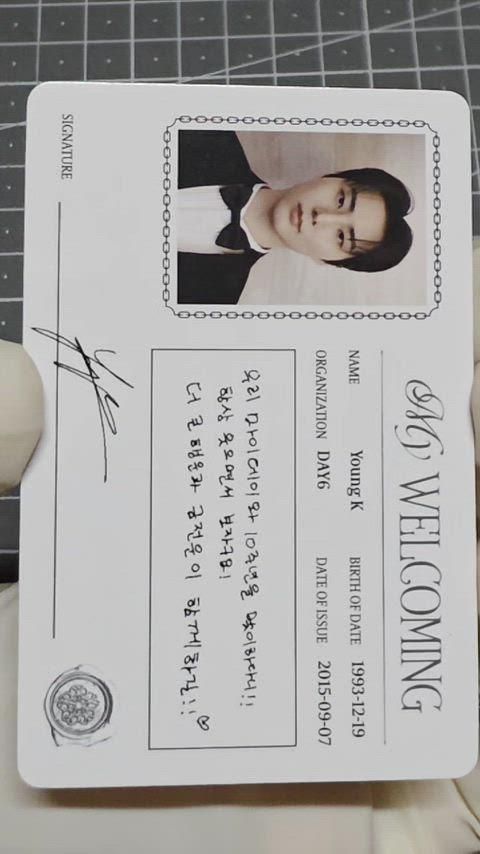 WELCOMING
NAME Young K BIRTH OF DATE 1993-12-19
ORGANIZATION DAY6 DATE OF ISSUE 2015-09-07
우리 마이데이와 10주년을 맞이하다니!!
항상 웃으면서 보자구요!
더 큰 행운과 금전운이 함께하길!! ♡
SIGNATURE